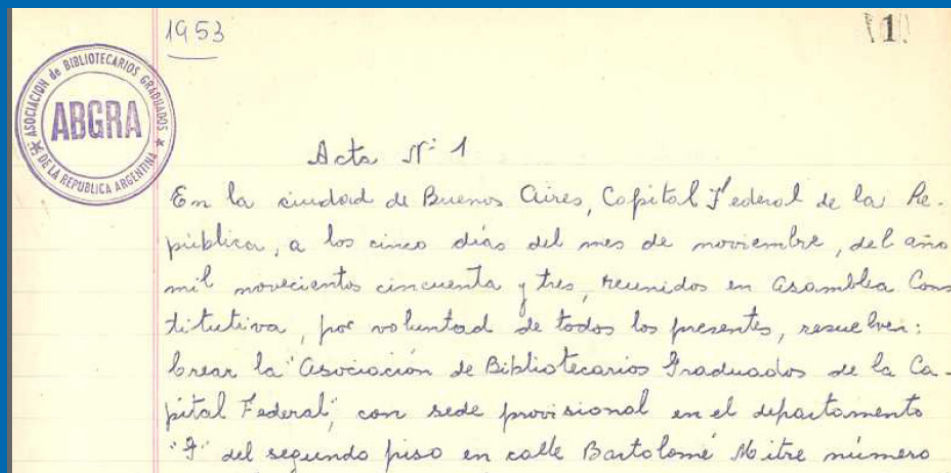 1953
1
ASOCIACION de BIBLIOTECARIOS GRADUADOS
ABGRA
DE LA REPUBLICA ARGENTINA
Acta Nº 1
En la ciudad de Buenos Aires, Capital Federal de la Re-
pública, a los cinco días del mes de noviembre, del año
mil novecientos cincuenta y tres, reunidos en Asamblea Cons
titutiva, por voluntad de todos los presentes, resuelven:
Crear la "Asociación de Bibliotecarios Graduados de la Ca-
pital Federal", con sede provisional en el departamento
"F" del segundo piso en calle Bartolomé Mitre número